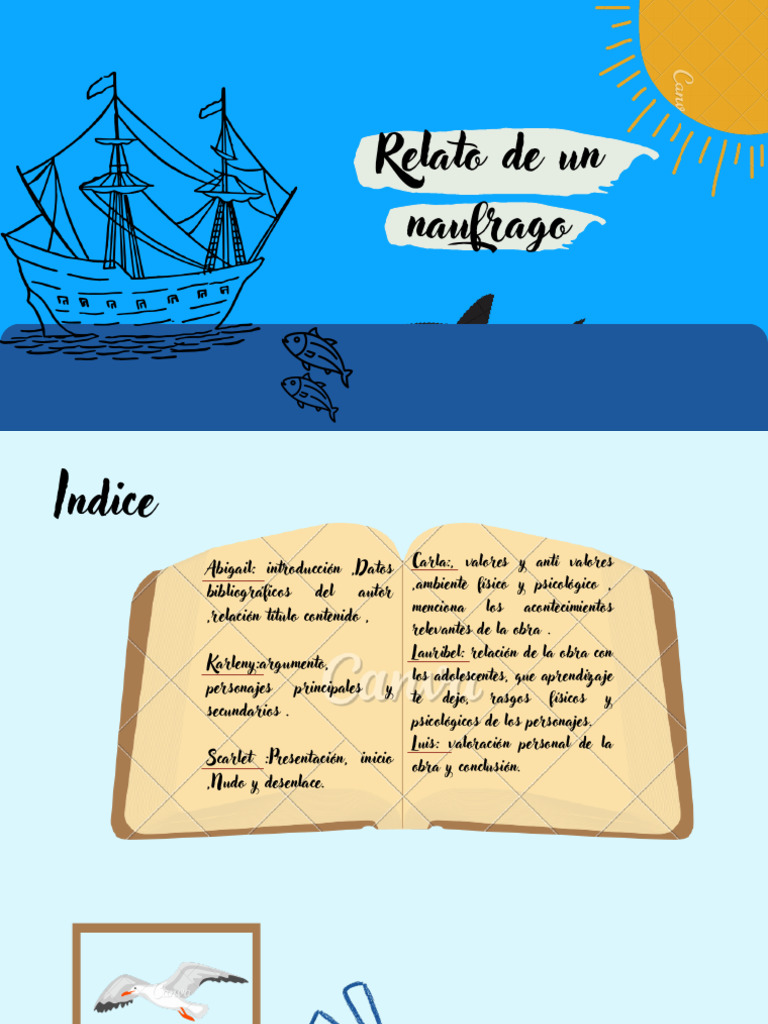 Relato de un
naufrago
Indice
Abigail: introducción ,Datos
bibliográficos del autor
,relación titulo contenido ,
Karleny:argumento,
personajes principales y
secundarios .
Scarlet :Presentación, inicio
,Nudo y desenlace.
Carla:, valores y anti valores
,ambiente físico y psicológico ,
menciona los acontecimientos
relevantes de la obra .
Lauribel: relación de la obra con
los adolescentes, que aprendizaje
te dejo, rasgos físicos y
psicológicos de los personajes.
Luis: valoración personal de la
obra y conclusión.
Canva